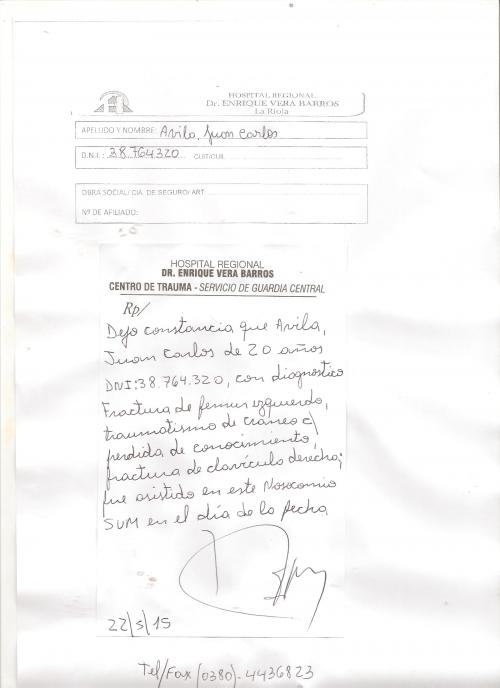 HOSPITAL REGIONAL
Dr. ENRIQUE VERA BARROS
La Rioja
APELUDO Y NOMBRE: Avila, Juan Carlos
D.N.I.: 38.764.320 CUIT/CUIL
OBRA SOCIAL/ CIA. DE SEGURO/ ART
Nº DE AFILIADO:
HOSPITAL REGIONAL
DR. ENRIQUE VERA BARROS
CENTRO DE TRAUMA - SERVICIO DE GUARDIA CENTRAL
Rp/
Dejo constancia que Avila,
Juan Carlos de 20 años
DNI: 38.764.320, con diagnostico
Fractura de femur izquierdo,
traumatismo de craneo c/
perdida de conocimiento,
fractura de clavícula derecha;
fue asistido en este Nosocomio
SUM en el día de la fecha
22/5/15
Tel/Fax (0380)-4436823